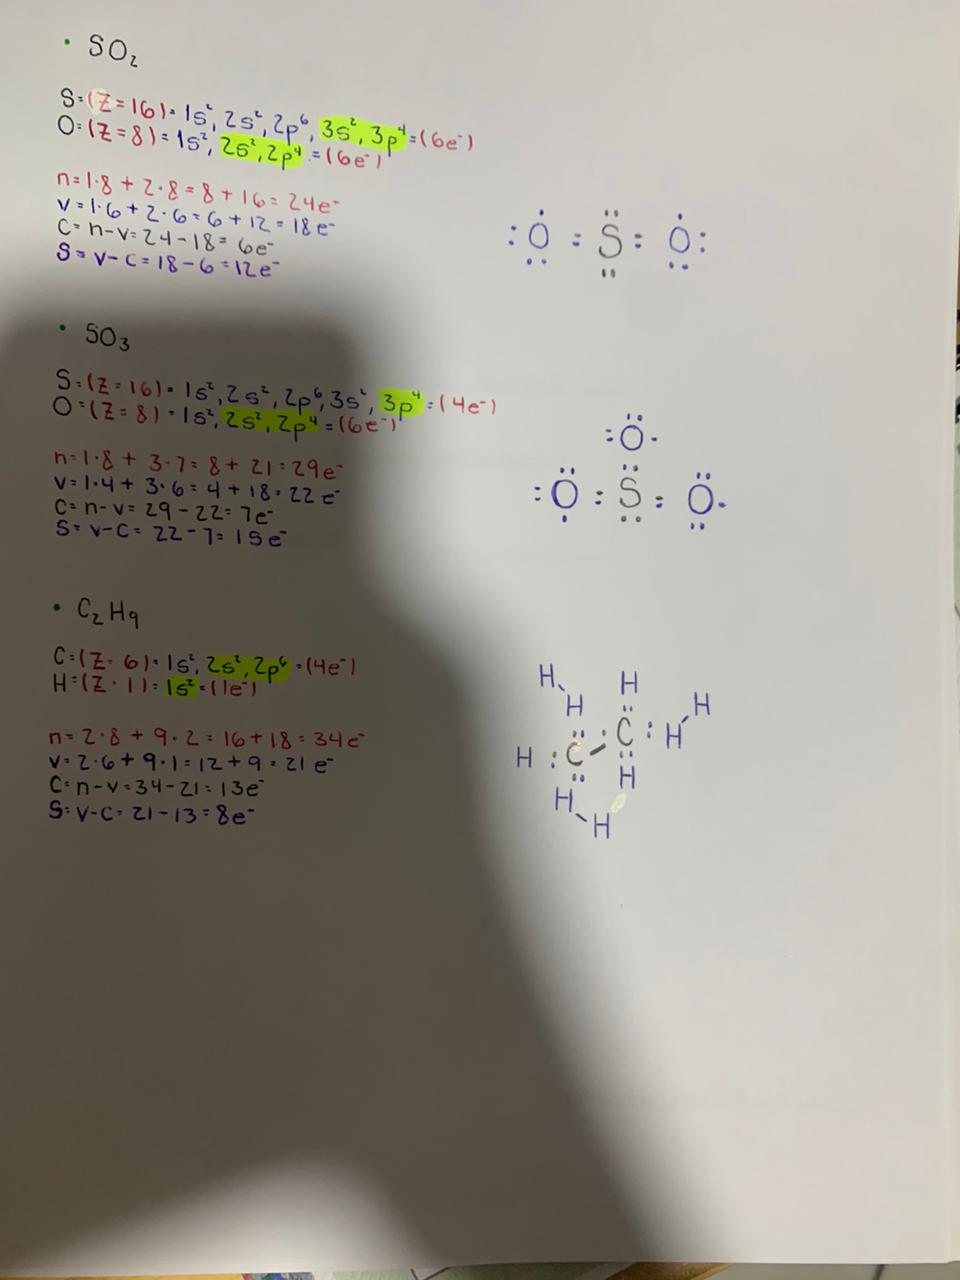 • SO₂
S=(Z=16)=1s², 2s², 2p⁶, 3s², 3p⁴=(6e⁻)
O=(Z=8)=1s², 2s², 2p⁴=(6e⁻)
n=1·8 + 2·8=8+16=24e⁻
v=1·6+2·6=6+12=18e⁻
C=n-v=24-18=6e⁻
S=v-C=18-6=12e⁻
:O=S=O:
• SO₃
S=(Z=16)=1s², 2s², 2p⁶, 3s², 3p⁴=(4e⁻)
O=(Z=8)=1s², 2s², 2p⁴=(6e⁻)
n=1·8 + 3·7=8+21=29e⁻
v=1·4+3·6=4+18=22e⁻
C=n-v=29-22=7e⁻
S=v-C=22-7=15e⁻
:O·
:O:S:O·
• C₂H₉
C=(Z=6)=1s², 2s², 2p⁶=(4e⁻)
H=(Z=1)=1s²=(1e⁻)
n=2·8+9·2=16+18=34e⁻
v=2·6+9·1=12+9=21e⁻
C=n-v=34-21=13e⁻
S=v-C=21-13=8e⁻
H H
H H
C:H
H:C
H
H
H